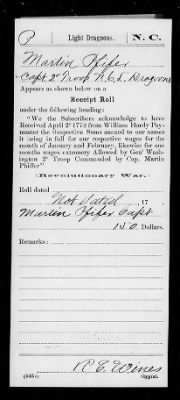 P
Light Dragoons.
N. C.
Martin Phifer
Capt 2d Troop N.C. L. Dragoons
Appears as shown below on a
Receipt Roll
under the following heading:
"We the Subscribers acknowledge to have
Received April 2d 1778 from William Hardy Pay-
master the Respective Sums annexed to our names
it being in full for our respective wages for the
month of January and February, likewise for one
months wages extreory Allowed by Gen1 Wash-
ington 2d Troop Commanded by Cap. Martin
Phiffer"
(Revolutionary War.)
Roll dated
Not dated, 17
Martin Phifer Capt
150 Dollars.
Remarks:
R. E. Wines
(666c)
Copyist.